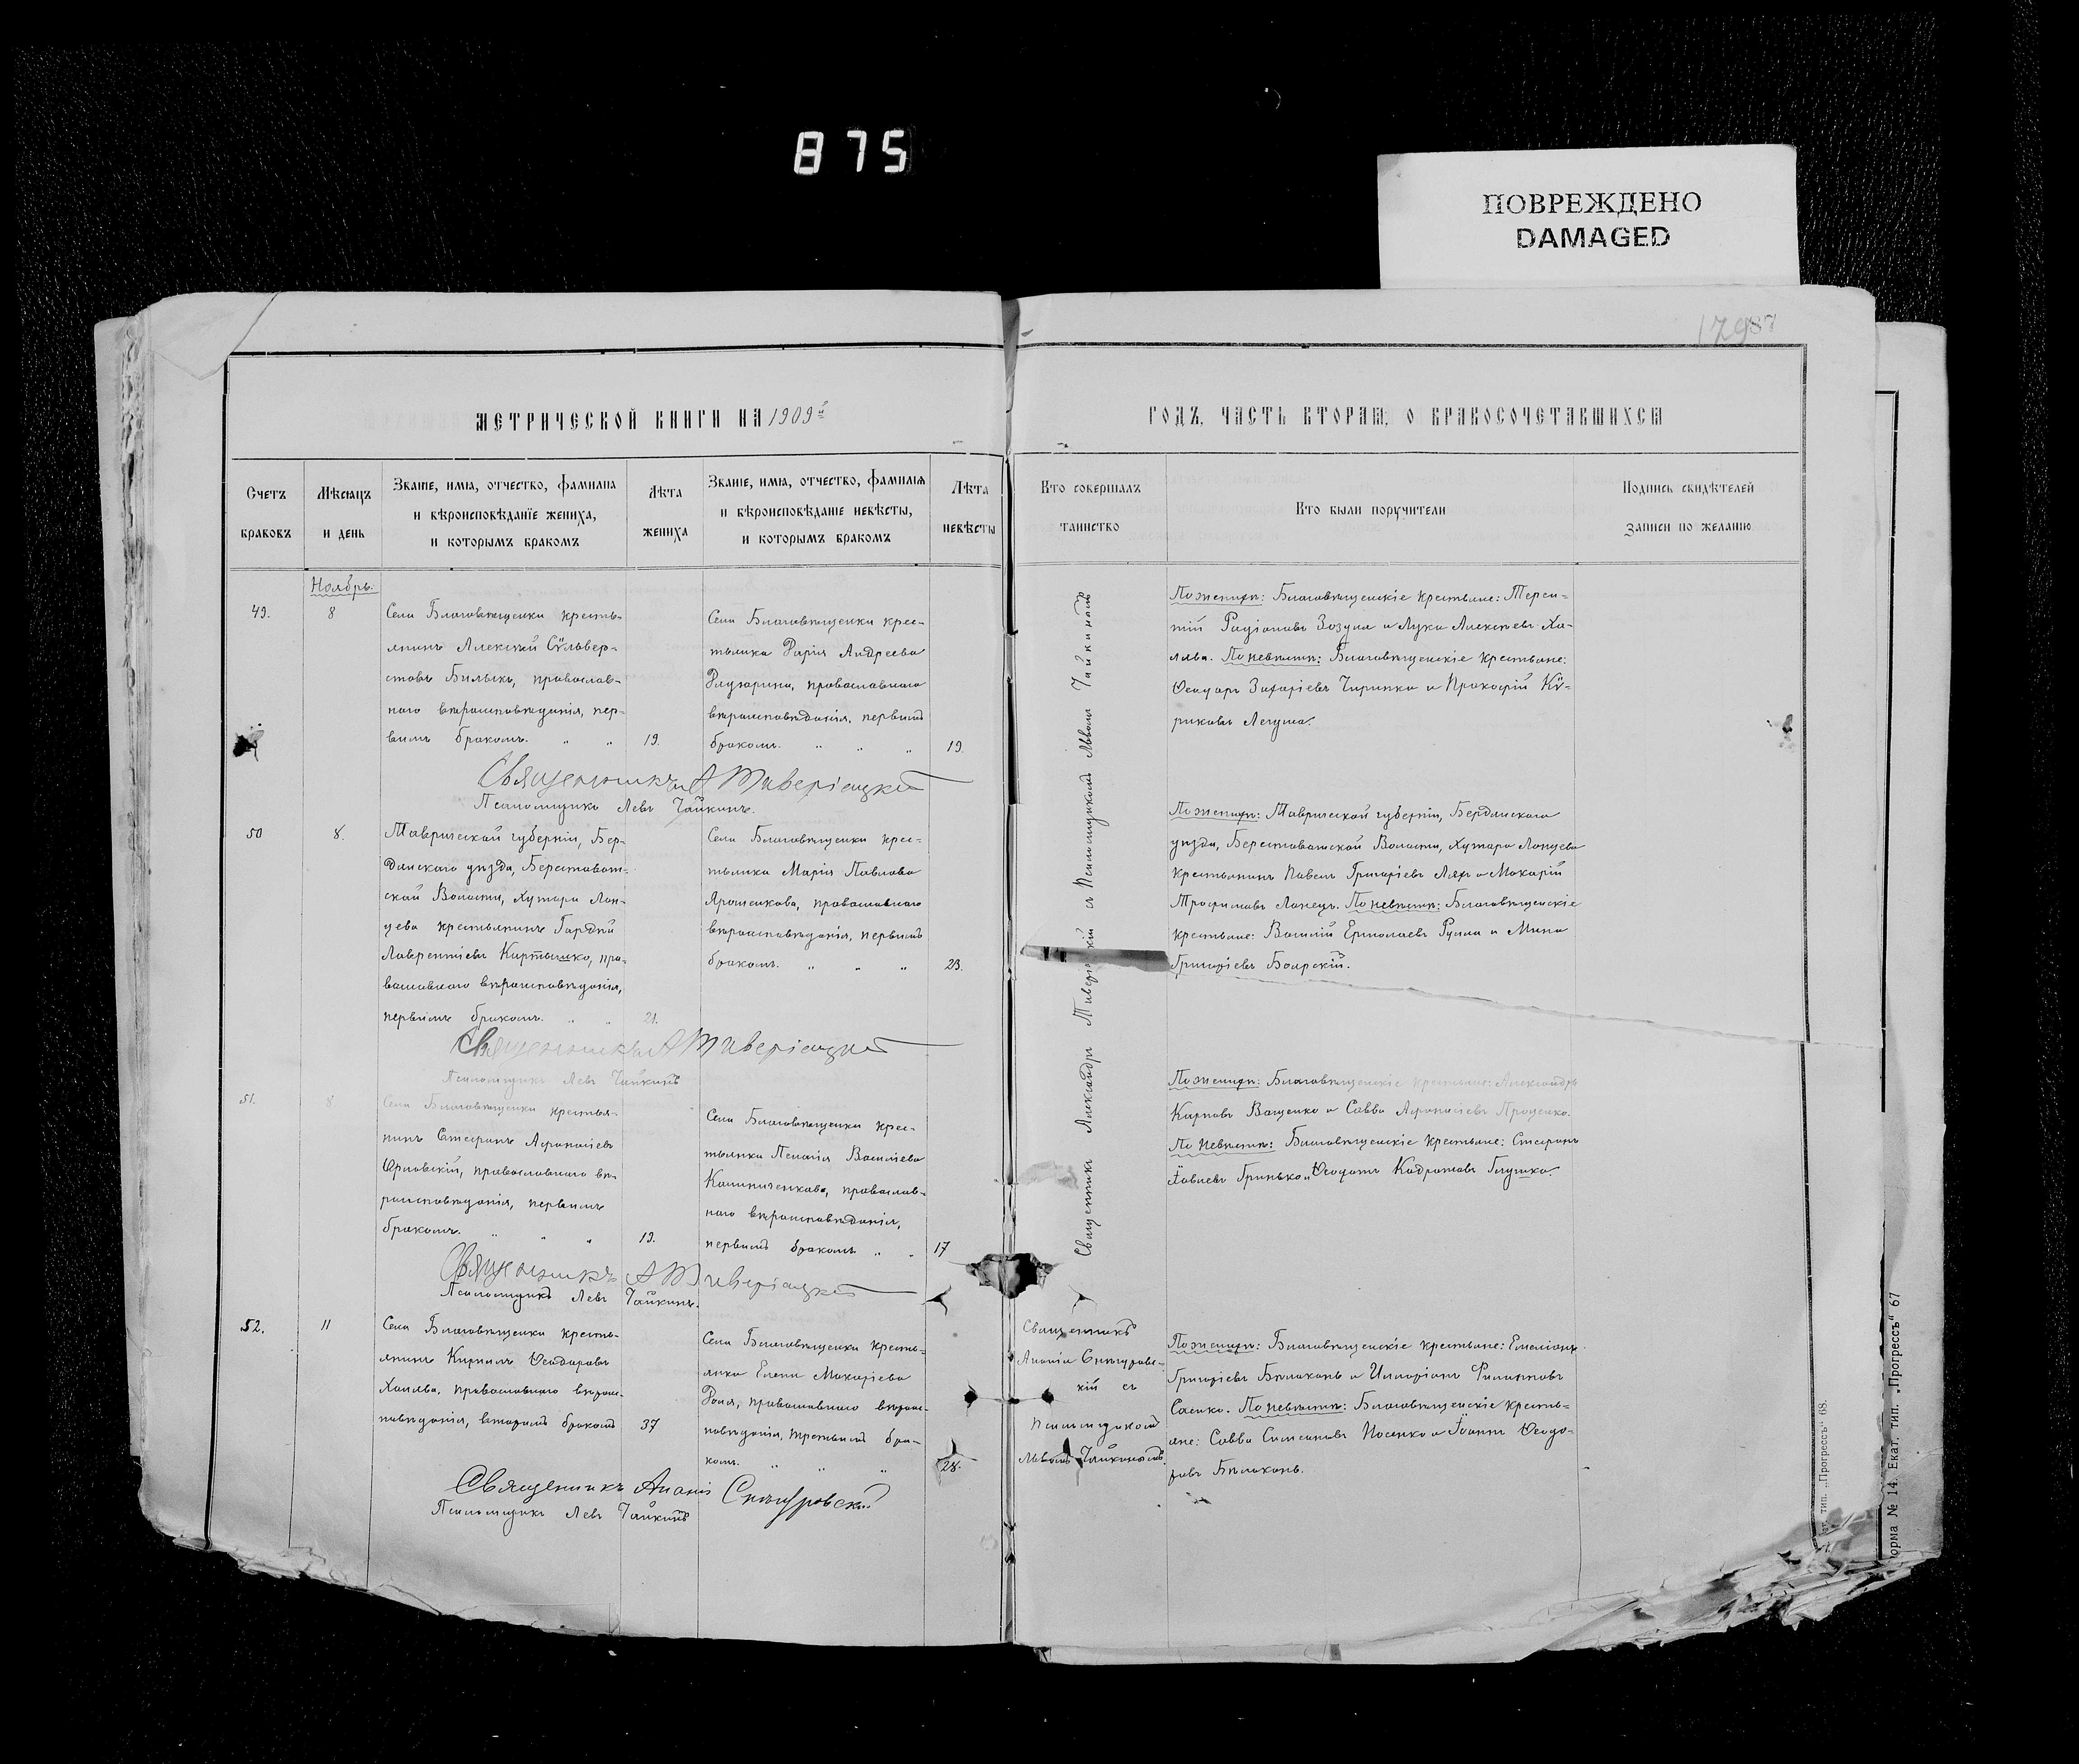 875
ПОВРЕЖДЕНО
DAMAGED
МЕТРИЧЕСКОЙ КНИГИ НА 1909й
ГОДЪ, ЧАСТЬ ВТОРАЯ, О БРАКОСОЧЕТАВШИХСЯ
Счетъ браковъ
Мѣсяцъ и день
Званіе, имя, отчество, фамилия
и вѣроисповѣдніе жениха,
и которымъ бракомъ
Лѣта жениха
Званіе, имя, отчество, фамилія
и вѣроисповѣданіе невѣсты,
и которымъ бракомъ
Лѣта невѣсты
Кто совершалъ таинство
Кто были поручители
Подпись свидѣтелей
записи по желанію
Ноябрь.
49.
8
Села Благовѣщенки кресть-
янинъ Алексѣй Сѵльвер-
стовъ Билыкъ, православ-
наго вѣроисповѣданія, пер-
вымъ бракомъ. " "
19.
Села Благовѣщенки крес-
тьянка Дарія Андреева
православнаго
вѣроисповѣданія, первымъ
бракомъ. " " "
19.
Священникъ А Тивериацкій
Псаломщикъ Левъ Чайкинъ.
По женихѣ: Благовѣщенскіе крестьяне: Терен-
тій Радіоновъ Зозуля и Лука Алексѣевъ Ха-
лява. По невѣстѣ: Благовѣщенскіе крестьяне:
Ѳеодоръ Захаріевъ Чирипка и Прокофій Кѵ-
риковъ Легуша.
Священникъ Александръ Тиверіацкій съ Псаломщикомъ Львомъ Чайкинымъ
50
8.
Таврической губерніи, Бер-
дянскаго уѣзда, Берестоват-
ской Волости, Хутора Лан-
цева крестьянинъ Гордѣй
Лаврентіевъ Картышко, пра-
вославнаго вѣроисповѣданія,
первымъ бракомъ. " "
21.
Села Благовѣщенки крес-
тьянка Марія Павлова
Ярошенкова, православнаго
вѣроисповѣданія, первымъ
бракомъ. " " "
23.
Священникъ А Тивериацкій
Псаломщикъ Левъ Чайкинъ
По женихѣ: Таврической губерніи, Бердянскаго
уѣзда, Берестоватской Волости, Хутора Ланцева
крестьянинъ Павелъ Григоріевъ Ляхъ и Макарій
Трофимовъ Ланецъ. По невѣстѣ: Благовѣщенскіе
крестьяне: Василій Ермолаевъ Руина и Мина
Григоріевъ Боярскій.
51.
8
Села Благовѣщенки крестья-
нинъ Стефанъ Аѳанасіевъ
Орловскій, православнаго вѣ-
роисповѣданія, первымъ
бракомъ. " " "
19.
Села Благовѣщенки крес-
тьянка Пелагія Василіева
Калиниченкова, православ-
наго вѣроисповѣданія,
первымъ бракомъ " "
17
Священникъ А Тивериацкій
Псаломщикъ Левъ Чайкинъ.
По женихѣ: Благовѣщенскіе крестьяне: Александръ
Карповъ Ващенко и Савва Аѳанасіевъ Проценко.
По невѣстѣ: Благовѣщенскіе крестьяне: Стефанъ
Іовлевъ Гринько и Ѳеодотъ Кодратовъ Глушко.
52.
11
Села Благовѣщенки кресть-
янинъ Кириллъ Ѳеодоровъ
Халява, православнаго вѣроис-
повѣданія, вторымъ бракомъ
37
Села Благовѣщенки кресть-
янка Елена Макаріева
православнаго вѣроис-
повѣданія, третьимъ бра-
комъ. " " "
28.
Священникъ
Ананія Снѣгуровс-
кій съ
Псаломщикомъ
Львомъ Чайкинымъ.
По женихѣ: Благовѣщенскіе крестьяне: Емеліанъ
Григоріевъ Бѣлоконь и Илларіонъ Филипповъ
Саенко. По невѣстѣ: Благовѣщенскіе кресть-
яне: Савва Симеоновъ Носенко и Іоаннъ Ѳеодо-
ровъ Бѣлоконь.
Священникъ Ананія Снѣгуровскій
Псаломщикъ Левъ Чайкинъ
тип. „Прогрессъ“ 68.
орма № 14. Екат. тип. „Прогрессъ“ 67